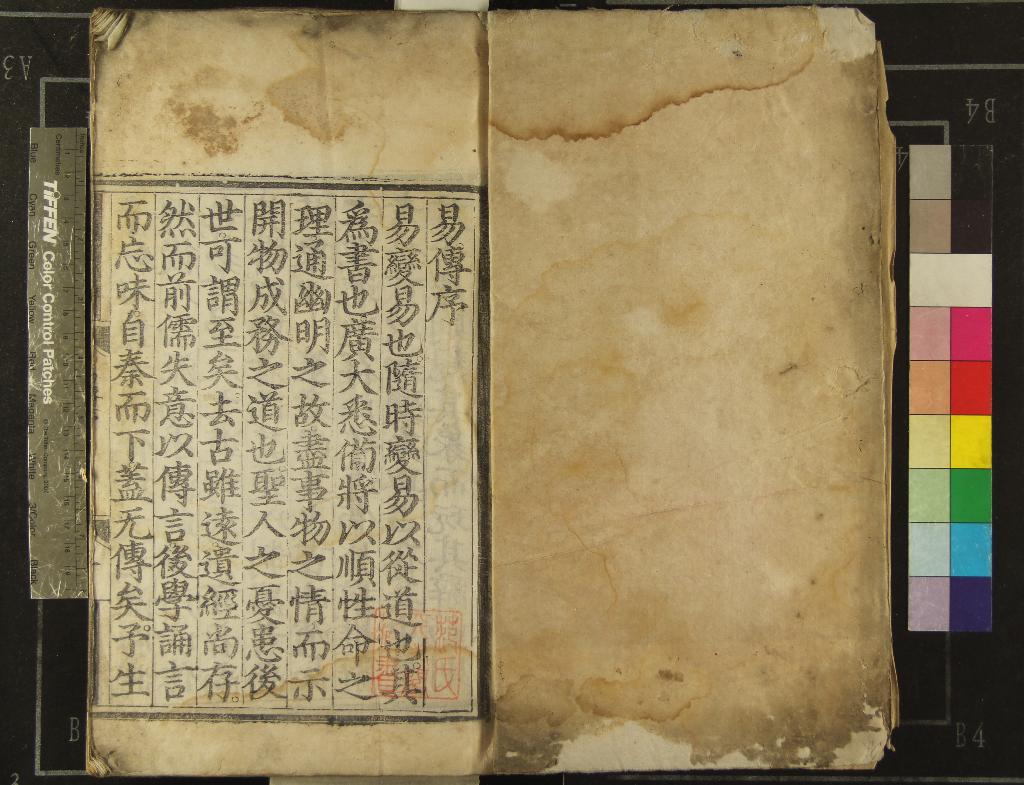 易傳序
易變易也隨時變易以從道也其
爲書也廣大悉備將以順性命之
理通幽明之故盡事物之情而示
開物成務之道也聖人之憂患後
世可謂至矣去古雖遠遺經尚存
然而前儒失意以傳言後學誦言
而忘味自秦而下蓋无傳矣予生
TIFFEN Color Control Patches
Blue
Cyan
Green
Yellow
Red
Magenta
White
3/Color
Black
Centimetres
B4
B4
A3
B